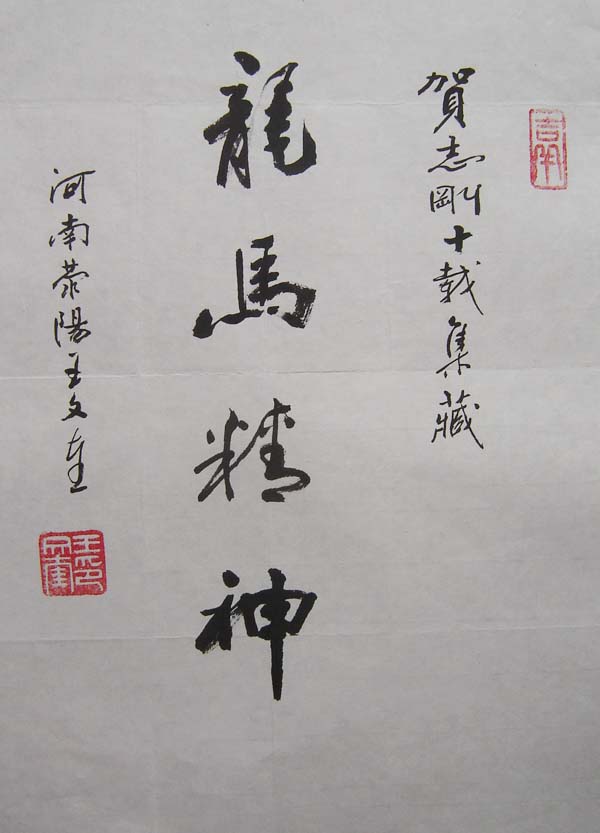 賀志剛十載集藏
龍馬精神
河南荥陽王文